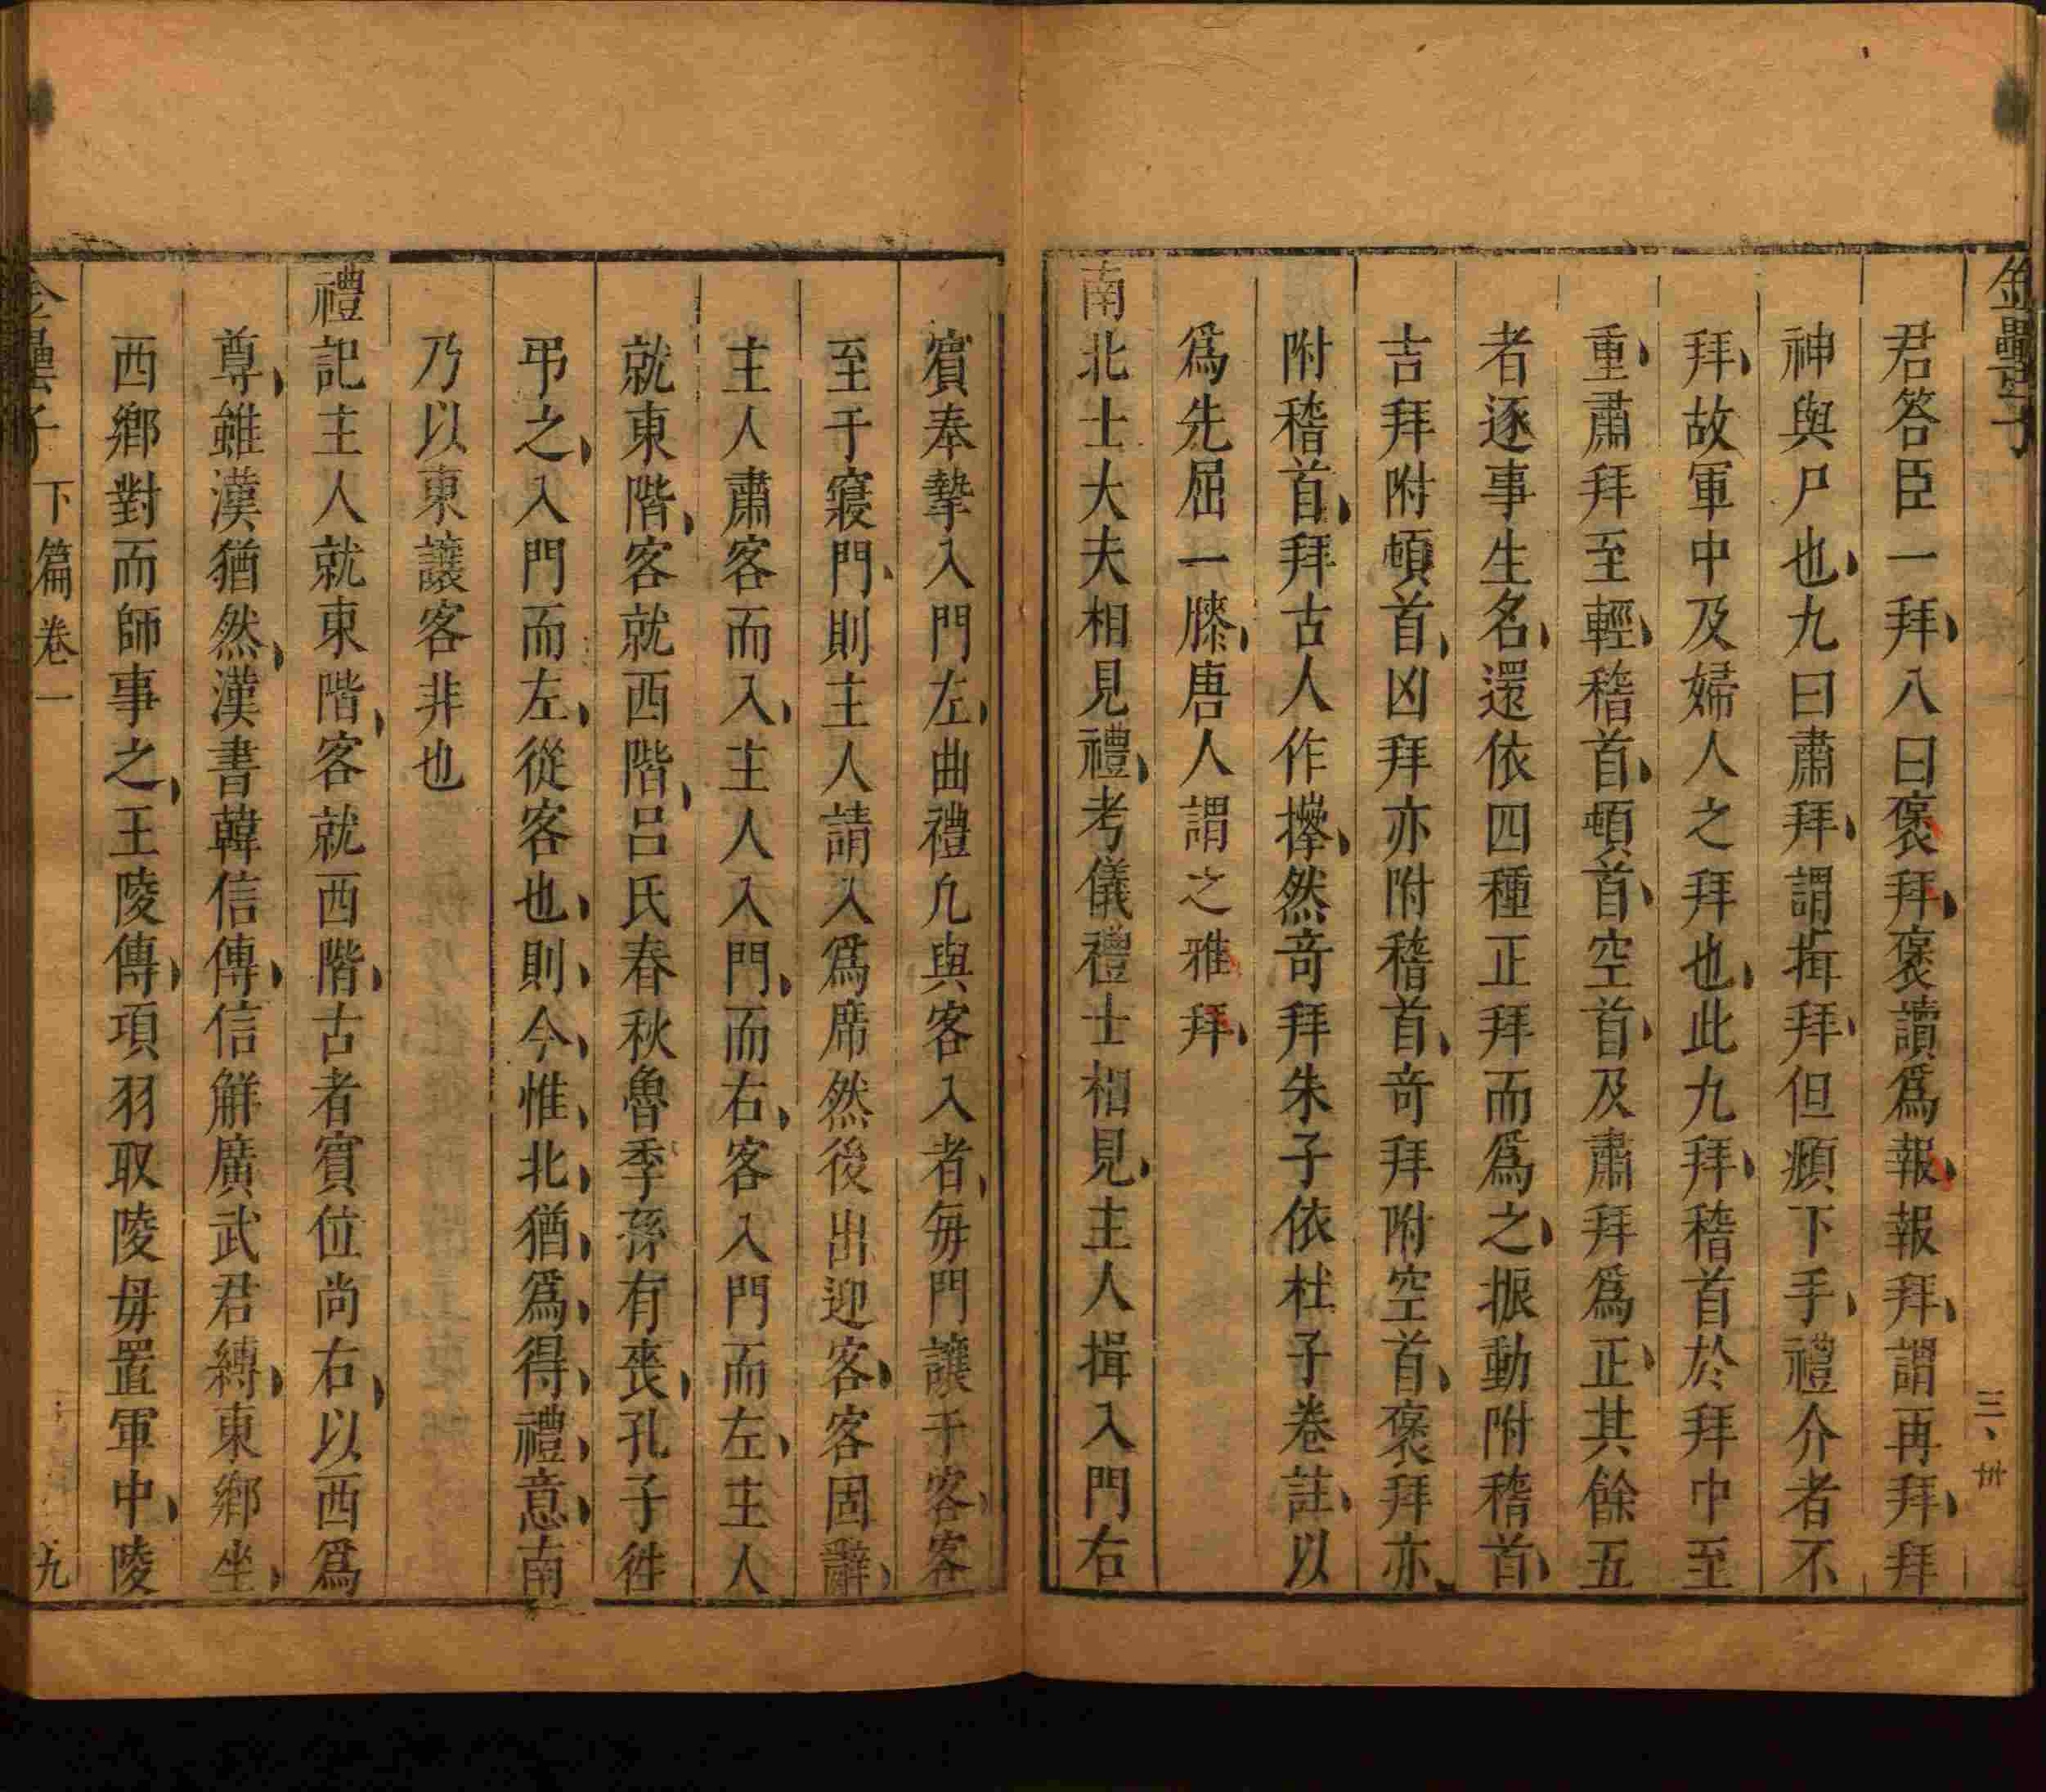 金罍子
三、卅
君答臣一拜八曰褒拜褒讀爲報報拜謂再拜拜
神與尸也九曰肅拜謂揖拜但頫下手禮介者不
拜故軍中及婦人之拜也此九拜稽首於拜中至
重肅拜至輕稽首頓首空首及肅拜爲正其餘五
者逐事生名還依四種正拜而爲之振動附稽首
吉拜附頓首凶拜亦附稽首奇拜附空首褒拜亦
附稽首拜古人作𢷎然竒拜朱子依杜子卷註以
爲先屈一膝唐人謂之雅拜
南北士大夫相見禮考儀禮士相見主人揖入門右
賓奉摯入門左曲禮凡與客入者每門讓于客客
至于寢門則主人請入爲席然後出迎客客固辭
主人肅客而入主人入門而右客入門而左主人
就東階客就西階呂氏春秋魯季孫有喪孔子徃
弔之入門而左從客也則今惟北猶爲得禮意南
乃以東讓客非也
禮記主人就東階客就西階古者賓位尚右以西爲
尊雖漢猶然漢書韓信傳信解廣武君縛東鄉坐
西鄉對而師事之王陵傳項羽取陵母置軍中陵
金罍子 下篇卷一 九